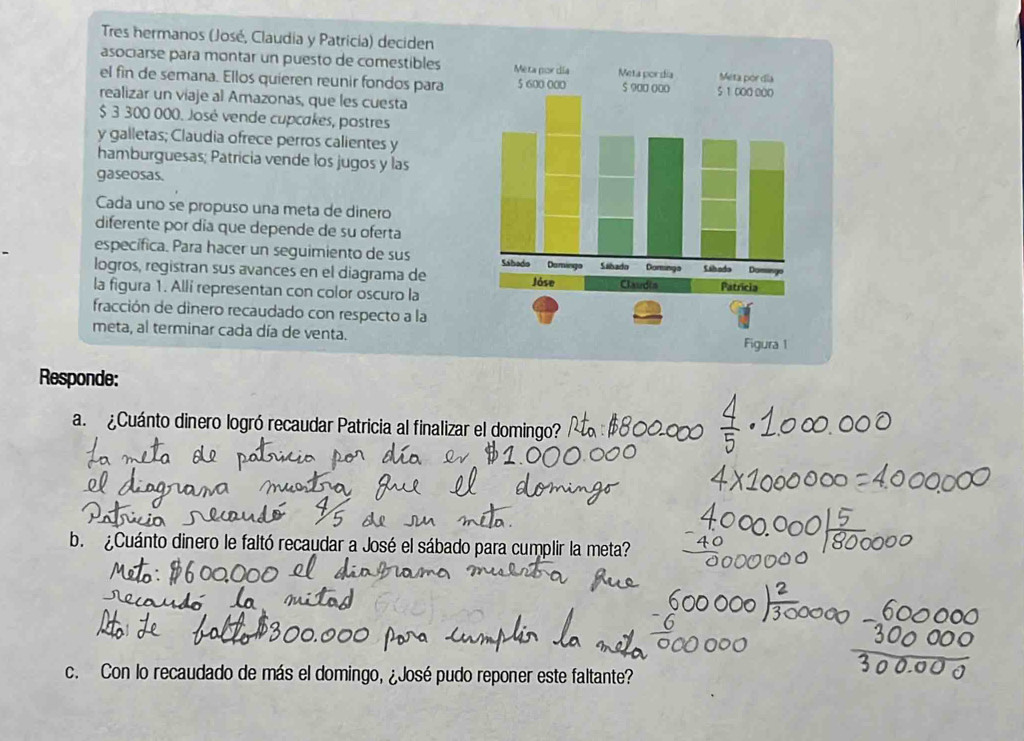 Tres hermanos (José, Claudia y Patricia) deciden
asociarse para montar un puesto de comestibles
el fin de semana. Ellos quieren reunir fondos para
realizar un viaje al Amazonas, que les cuesta
$ 3 300 000. José vende cupcakes, postres
y galletas; Claudia ofrece perros calientes y
hamburguesas; Patricia vende los jugos y las
gaseosas.
Cada uno se propuso una meta de dinero
diferente por día que depende de su oferta
específica. Para hacer un seguimiento de sus
logros, registran sus avances en el diagrama de
la figura 1. Allí representan con color oscuro la
fracción de dinero recaudado con respecto a la
meta, al terminar cada día de venta.
Meta por día Meta por día Meta por día
$ 600 000 $ 900 000 $ 1 000 000
Sábado Domingo Sábado Domingo Sábado Domingo
Jóse Claudia Patricia
Figura 1
Responde:
a. ¿Cuánto dinero logró recaudar Patricia al finalizar el domingo? Rta: $800.000 4/5 · 1.000.000
La meta de patricia por día er $1.000.000
el diagrama muestra que el domingo 4x1000000=4.000.000
Patricia recaudó 4/5 de su meta. 4.000.000 5
-40 800000
0000000
b. ¿Cuánto dinero le faltó recaudar a José el sábado para cumplir la meta?
Meta: $600.000 el diagrama muestra que
recaudó la mitad 600000 2 300000 -600000
Rta: Le falto $300.000 para cumplir la meta -6 300000
000000 300.000
c. Con lo recaudado de más el domingo, ¿José pudo reponer este faltante?